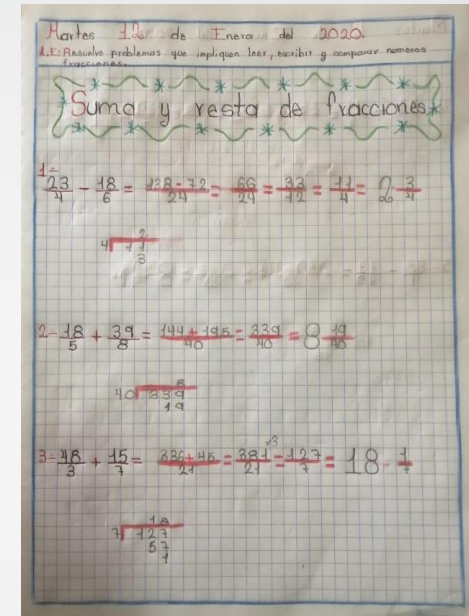 Martes 12 de Enero del 2020.
A.E: Resolvé problemas que impliquen leer, escribir y comparar numeros
fracciones.
Suma y resta de fracciones
1- 23/4 - 18/6 = 138-72/24 = 66/24 = 33/12 = 11/4 = 2 3/4
2
4 11
3
2- 18/5 + 39/8 = 144+195/40 = 339/40 = 8 19/40
8
40 339
19
3- 48/3 + 15/7 = 336+45/21 = 381/21 = 127/7 = 18 1/7
÷3
18
7 127
57
1